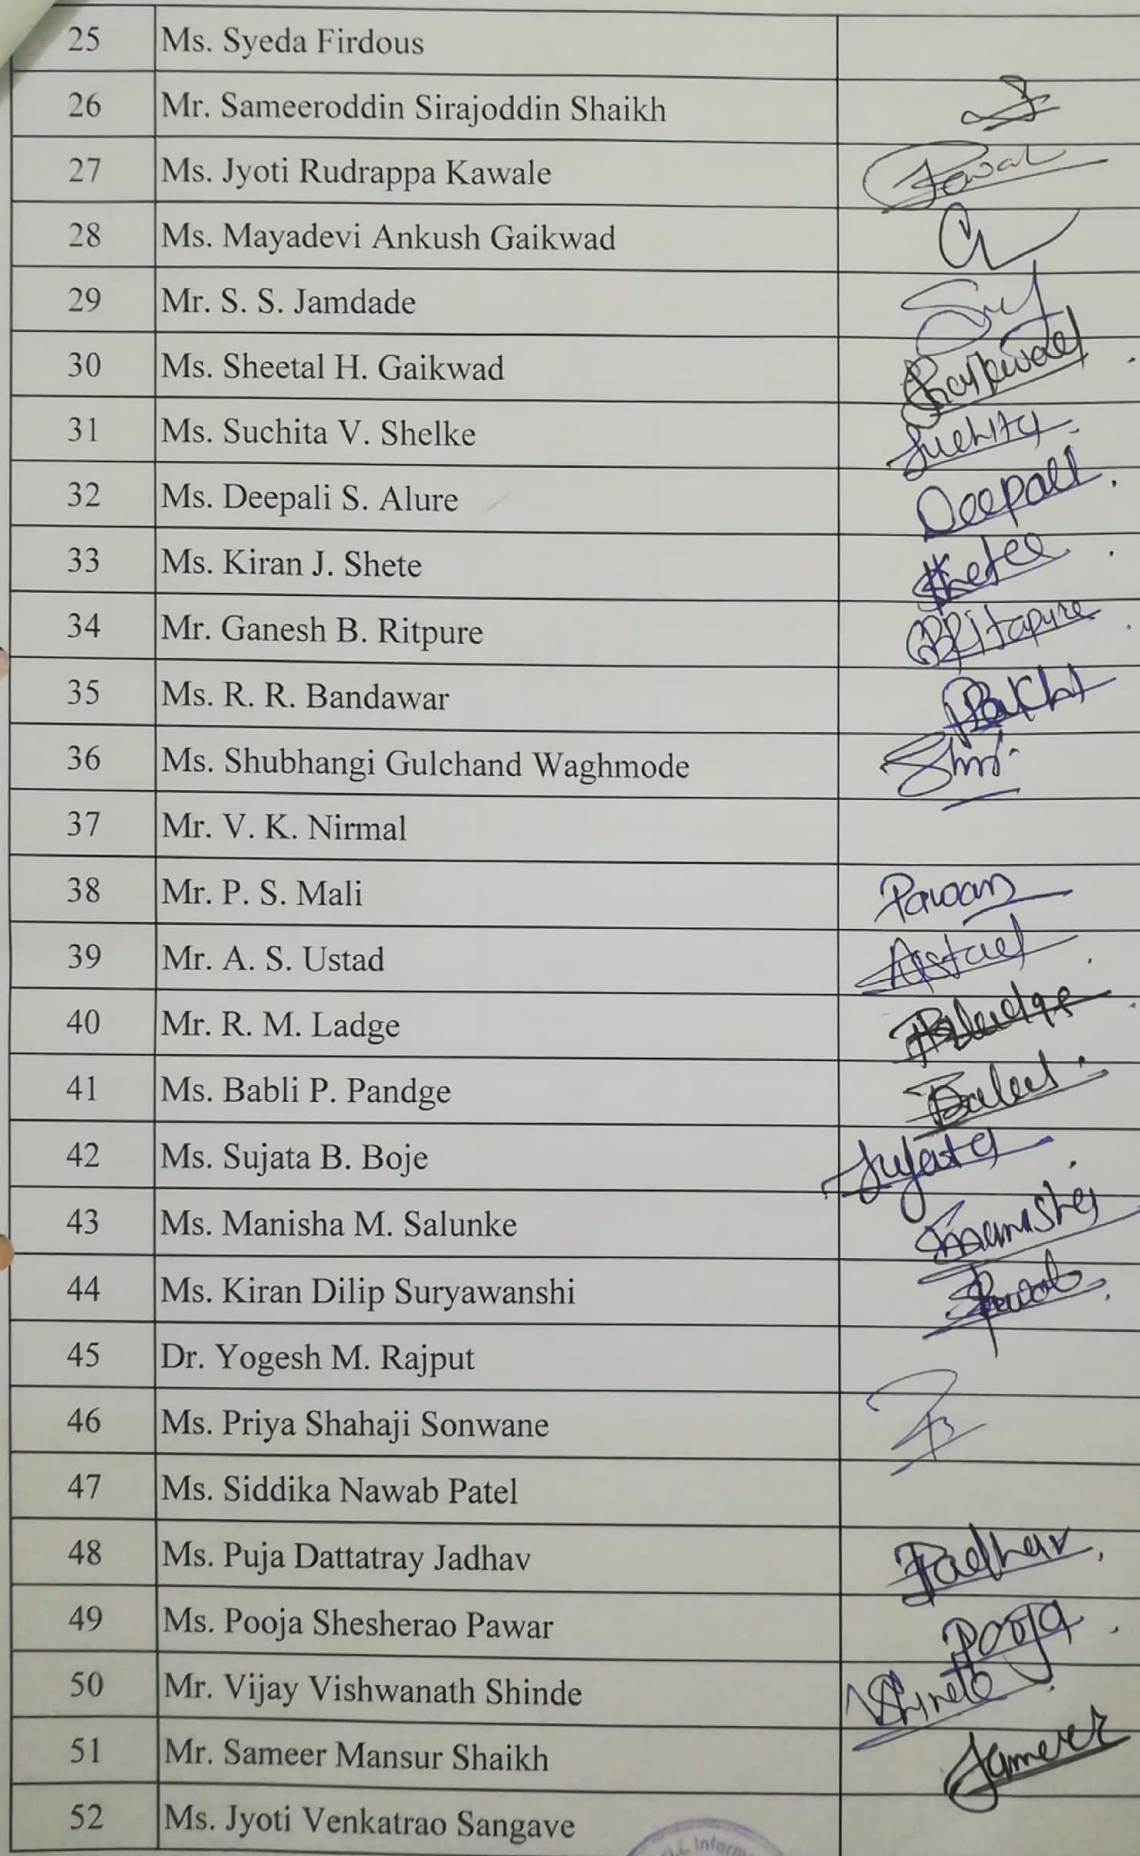 25 Ms. Syeda Firdous
26 Mr. Sameeroddin Sirajoddin Shaikh
27 Ms. Jyoti Rudrappa Kawale
28 Ms. Mayadevi Ankush Gaikwad
29 Mr. S. S. Jamdade
30 Ms. Sheetal H. Gaikwad
31 Ms. Suchita V. Shelke Suchita
32 Ms. Deepali S. Alure Deepali
33 Ms. Kiran J. Shete
34 Mr. Ganesh B. Ritpure
35 Ms. R. R. Bandawar
36 Ms. Shubhangi Gulchand Waghmode
37 Mr. V. K. Nirmal
38 Mr. P. S. Mali
39 Mr. A. S. Ustad
40 Mr. R. M. Ladge
41 Ms. Babli P. Pandge
42 Ms. Sujata B. Boje Sujata
43 Ms. Manisha M. Salunke
44 Ms. Kiran Dilip Suryawanshi
45 Dr. Yogesh M. Rajput
46 Ms. Priya Shahaji Sonwane
47 Ms. Siddika Nawab Patel
48 Ms. Puja Dattatray Jadhav
49 Ms. Pooja Shesherao Pawar Pooja
50 Mr. Vijay Vishwanath Shinde
51 Mr. Sameer Mansur Shaikh Sameer
52 Ms. Jyoti Venkatrao Sangave